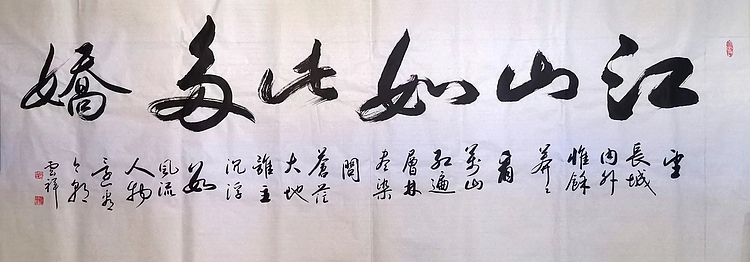 江山如此多嬌
望
長城
内外
惟餘
莽々
看
萬山
紅遍
層林
盡染
問
蒼茫
大地
誰主
沉浮
數
風流
人物
還看
今朝
雲祥